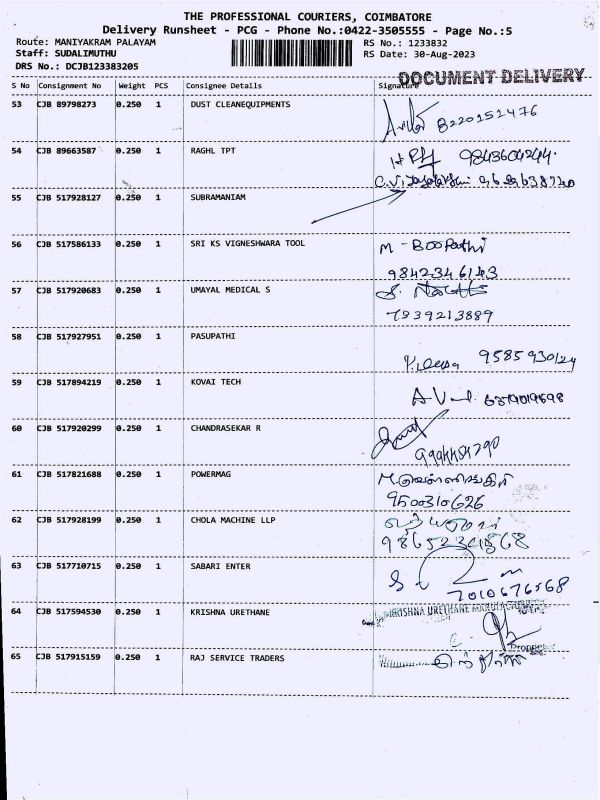 THE PROFESSIONAL COURIERS, COIMBATORE
Delivery Runsheet - PCG - Phone No.:0422-3505555 - Page No.:5
Route: MANIYAKRAM PALAYAM RS No.: 1233832
Staff: SUDALIMUTHU RS Date: 30-Aug-2023
DRS No.: DCJB123383205
DOCUMENT DELIVERY
S No Consignment No Weight PCS Consignee Details Signature
53 CJB 89798273 0.250 1 DUST CLEANEQUIPMENTS 8220152476
54 CJB 89663587 0.250 1 RAGHL TPT 9843604244
55 CJB 517928127 0.250 1 SUBRAMANIAM
56 CJB 517586133 0.250 1 SRI KS VIGNESHWARA TOOL M - Boopathi
9842346143
57 CJB 517920683 0.250 1 UMAYAL MEDICAL S
7939213889
58 CJB 517927951 0.250 1 PASUPATHI 9585930124
59 CJB 517894219 0.250 1 KOVAI TECH
60 CJB 517920299 0.250 1 CHANDRASEKAR R
61 CJB 517821688 0.250 1 POWERMAG
9500310626
62 CJB 517928199 0.250 1 CHOLA MACHINE LLP
63 CJB 517710715 0.250 1 SABARI ENTER
7010676568
64 CJB 517594530 0.250 1 KRISHNA URETHANE KRISHNA URETHANE
65 CJB 517915159 0.250 1 RAJ SERVICE TRADERS